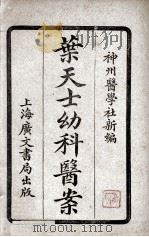 神州醫學社新編
葉天士幼科醫案
上海廣文書局出版